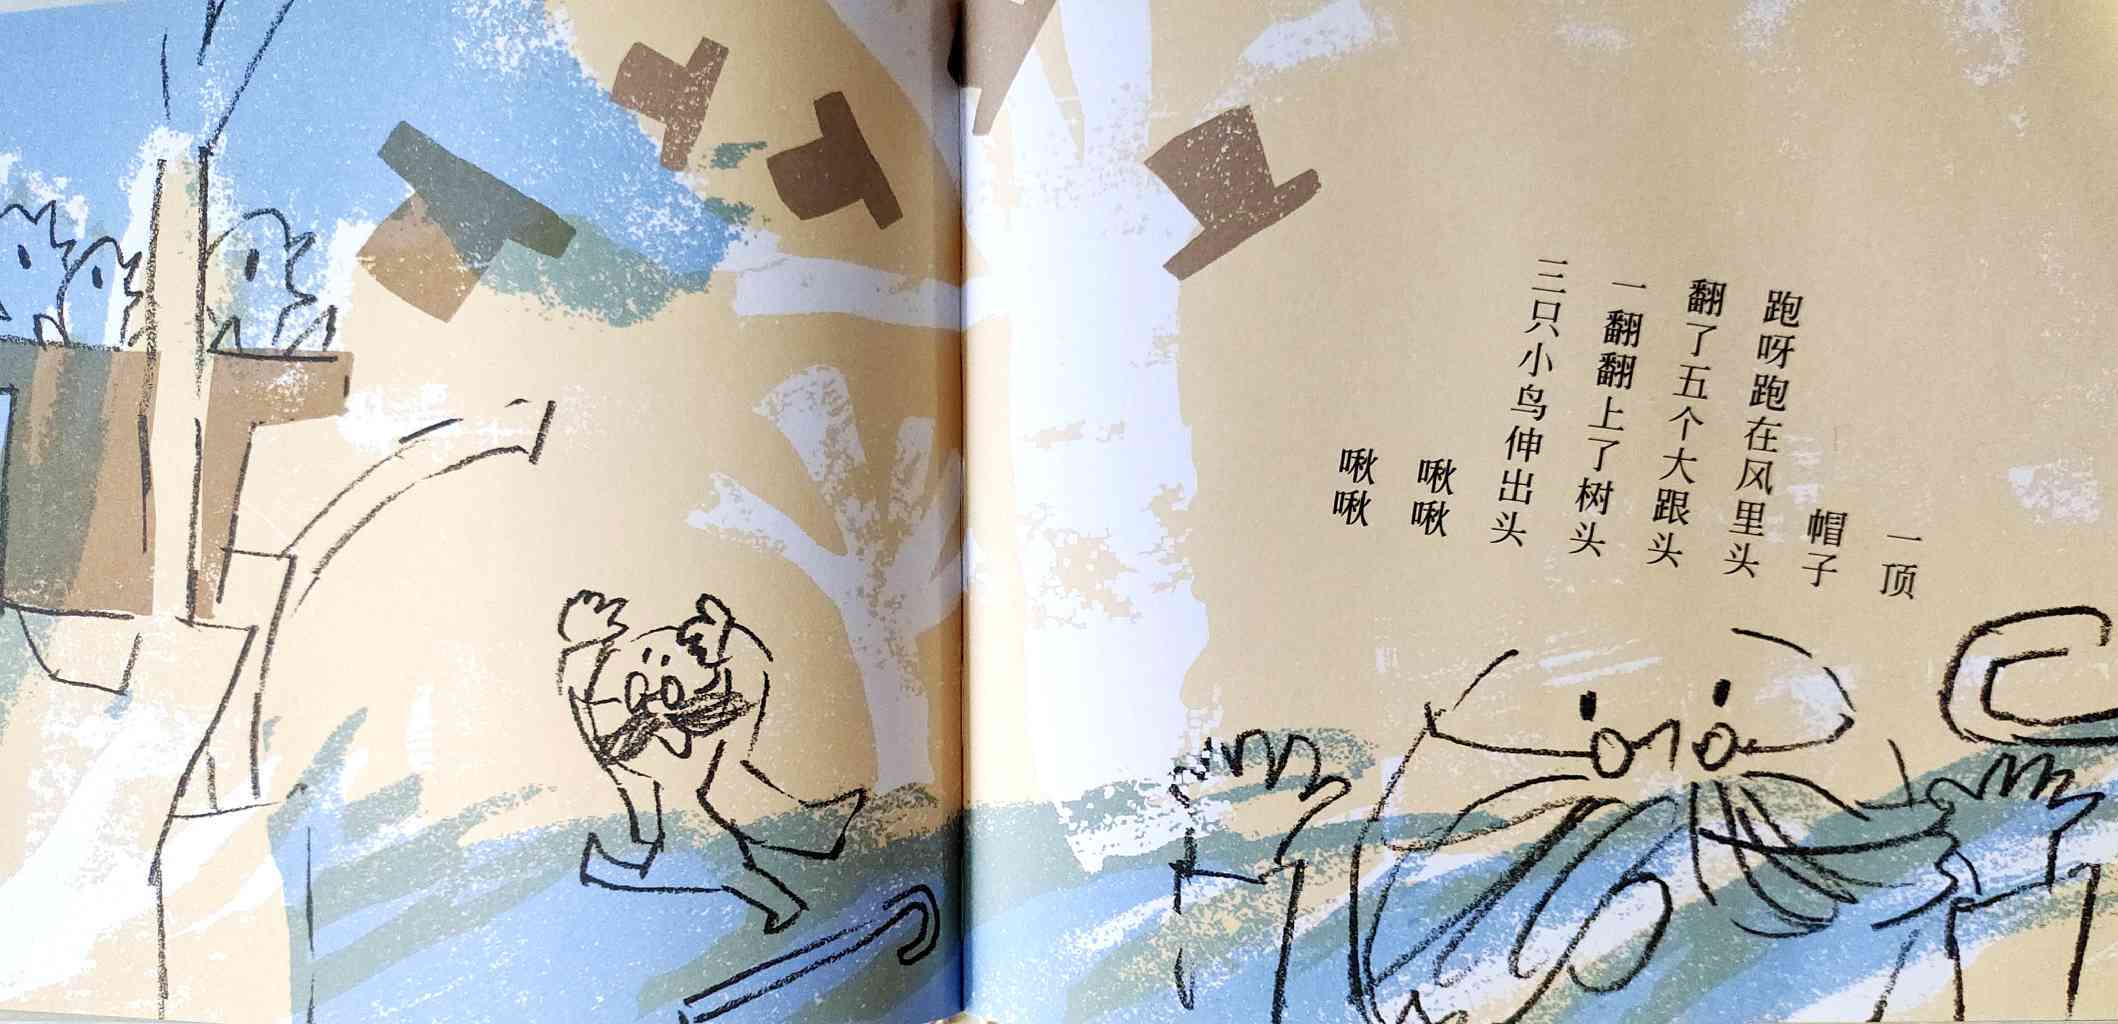 一顶
帽子
跑呀跑在风里头
翻了五个大跟头
一翻翻上了树头
三只小鸟伸出头
啾啾
啾啾